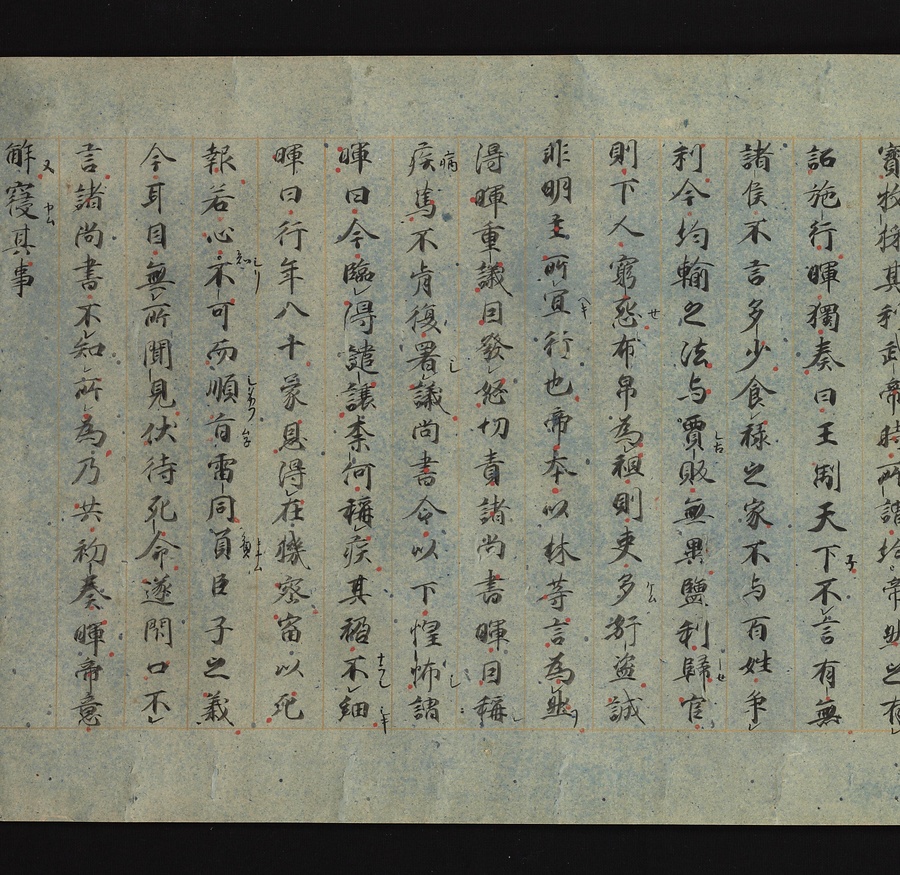 寶收採其利武帝時所謂均
詔施行暉獨奏曰王制天下不言有無
諸侯不言多少食祿之家不与百姓爭
利今均輸之法与賈販無異鹽利歸官
則下人窮怨布帛為祖則吏多姧盜誠
非明主所宜行也帝卒以林等言為然
得暉重議因發怒切責諸尚書暉因稱
疾篤不肯復署議尚書令以下惶怖謂
暉曰今臨得譴讓柰何稱疾其禍不細
暉曰行年八十蒙恩得在機密當以死
報若心不可而順旨雷同負臣子之義
今耳目無所聞見伏待死命遂閇口不
言諸尚書不知所為乃共劾奏暉帝意
解寑其事